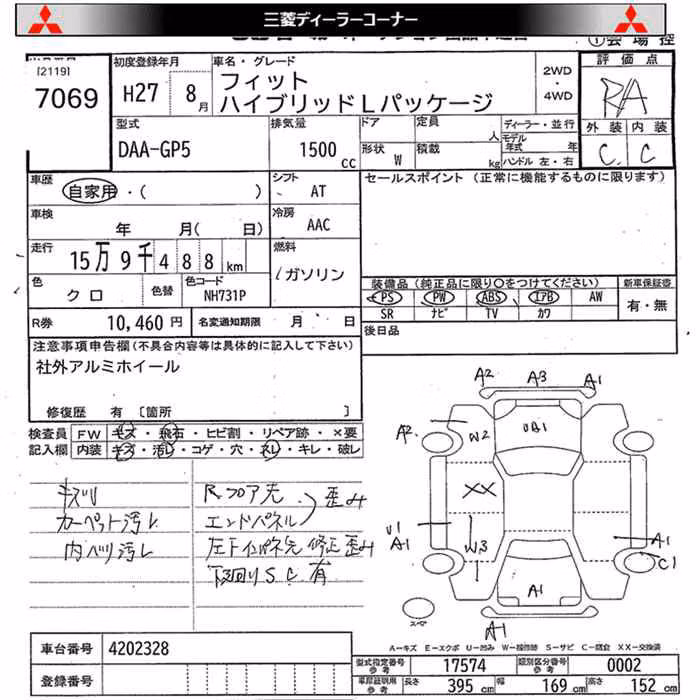 三菱ディーラーコーナー
[2119]
7069
初度登録年月
H27 8月
車名・グレード
フィット
ハイブリッドLパッケージ
2WD
・
4WD
評価点
RA
外装 内装
C C
型式
DAA-GP5
排気量
1500 cc
ドア
形状 W
定員 人
積載 kg
ディーラー・並行
モデル年式 年
ハンドル 左・右
車歴
自家用・( )
シフト
AT
車検
年 月( 日)
冷房
AAC
走行
15万9千488km
燃料
ガソリン
色
クロ
色替
色コード
NH731P
R券 10,460円
名変通知期限 月 日
セールスポイント (正常に機能するものに限ります)
装備品(純正品に限り○をつけてください)
PS PW ABS エアB AW
SR ナビ TV カワ
新車保証書
有・無
後日品
注意事項申告欄(不具合内容等は具体的に記入して下さい)
社外アルミホイール
修復歴 有 [箇所 ]
検査員
記入欄
FW キズ・飛石・ヒビ割・リペア跡・×要
内装 キズ・汚レ・コゲ・穴・ネレ・キレ・破レ
キズリ
カーペット汚レ
内ハリ汚レ
Rフロア先
エンドパネル
歪み
左下インパネ先 修正歪み
下回りSC有
A2 A3 A1
A2
W2
UB1
XX
U1
A1
W3
A1
C1
A1
A1
スペア
A-キズ E-エクボ U-凹み W-補修跡 S-サビ C-腐食 XX-交換済
車台番号 4202328
登録番号
型式指定番号 参考 17574
類別区分番号 参考 0002
車庫証明用 参考
長さ 395 cm
幅 169 cm
高さ 152 cm